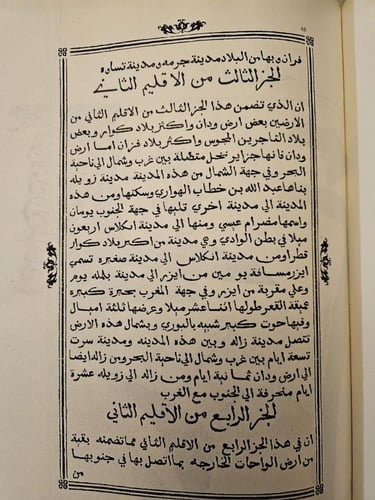 فزان وبها من البلاد مدينة جرمه ومدينة تساوه
الجز الثالث من الاقليم الثاني
ان الذي تضمن هذا الجز الثالث من الاقليم الثاني من
الارضين بعض ارض ودان واكثر بلاد كوار وبعض
بلاد التاجرين المجوس واكثر بلاد فزان اما ارض
ودان فانها جزاير نخل متصلة بين غرب وشمال الي ناحية
البحر وفي جهة الشمال من هذه المدينة مدينة زويله
بناها عبد الله بن خطاب الهواري وسكنها ومن هذه
المدينة الي مدينة اخري تليها في جهة الجنوب يومان
واسمها مضرام عيسي ومنها الي مدينة انكلاس اربعون
ميلا في بطن الوادي وهي مدينة من اكبر بلاد كوار
قطرا ومن مدينة انكلاس الي مدينة صغيره تسمي
ابزر مسافة يومين من ابزر الي مدينة بلمله يوم
وعلي مقربة من ابزر وفي جهة المغرب بحيرة كبيره
عميقة القعر طولها اثنا عشر ميلا وعرضها ثلثة اميال
وفيها حوت كبير شبيه بالبوري وبشمال هذه الارض
تتصل مدينة زاله وبين هذه المدينه ومدينة سرت
تسعة ايام بين غرب وشمال الي ناحية البحر ومن زاله ايضا
الي ارض ودان ثمانية ايام ومن زاله الي زويله عشرة
ايام منحرفة الي الجنوب مع الغرب
الجز الرابع من الاقليم الثاني
ان في هذا الجز الرابع من الاقليم الثاني مما تضمنه بقية
من ارض الواحات الخارجه بما اتصل بها في جنوبها
من